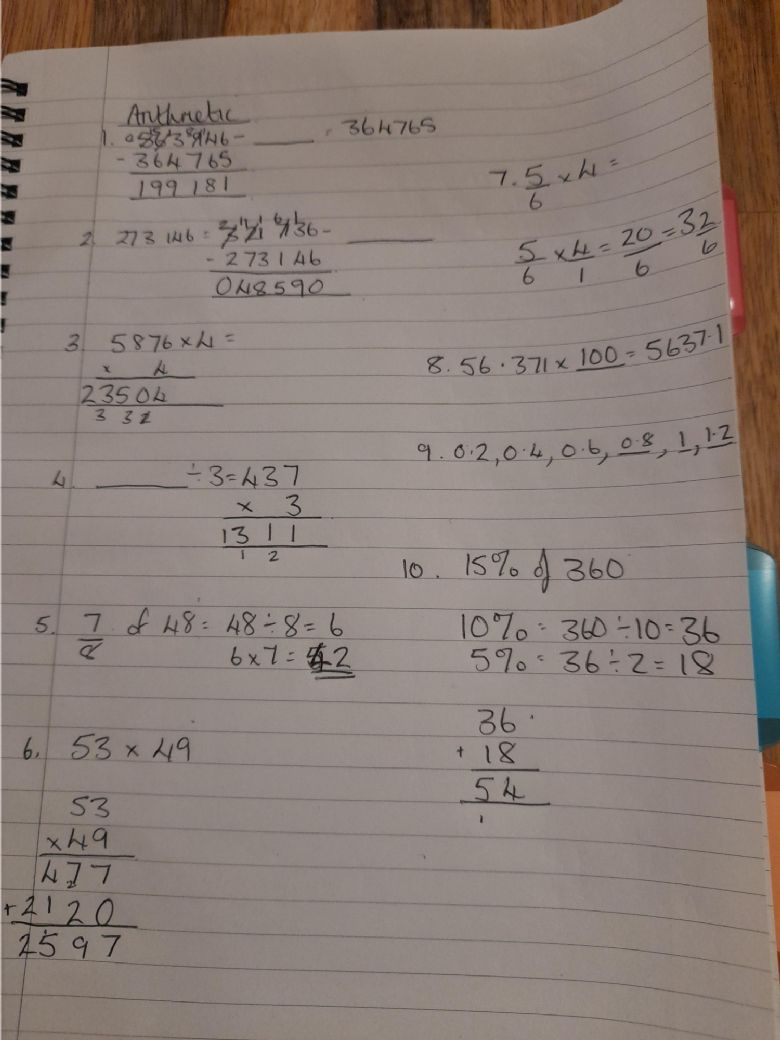 Arithmetic
1. 563946 - ____ = 364765
- 364765
199181
2. 273146 = 321736 - ____
- 273146
048590
3. 5876 × 4 =
× 4
23504
3 3 2
4. ____ ÷ 3 = 437
× 3
1311
1 2
5. 7/8 of 48 = 48 ÷ 8 = 6
6 × 7 = 42
6. 53 × 49
53
× 49
477
2
+ 2120
2597
7. 5/6 × 4 =
5/6 × 4/1 = 20/6 = 3 2/6
8. 56.371 × 100 = 5637.1
9. 0.2, 0.4, 0.6, 0.8, 1, 1.2
10. 15% of 360
10% = 360 ÷ 10 = 36
5% = 36 ÷ 2 = 18
36
+ 18
54
1